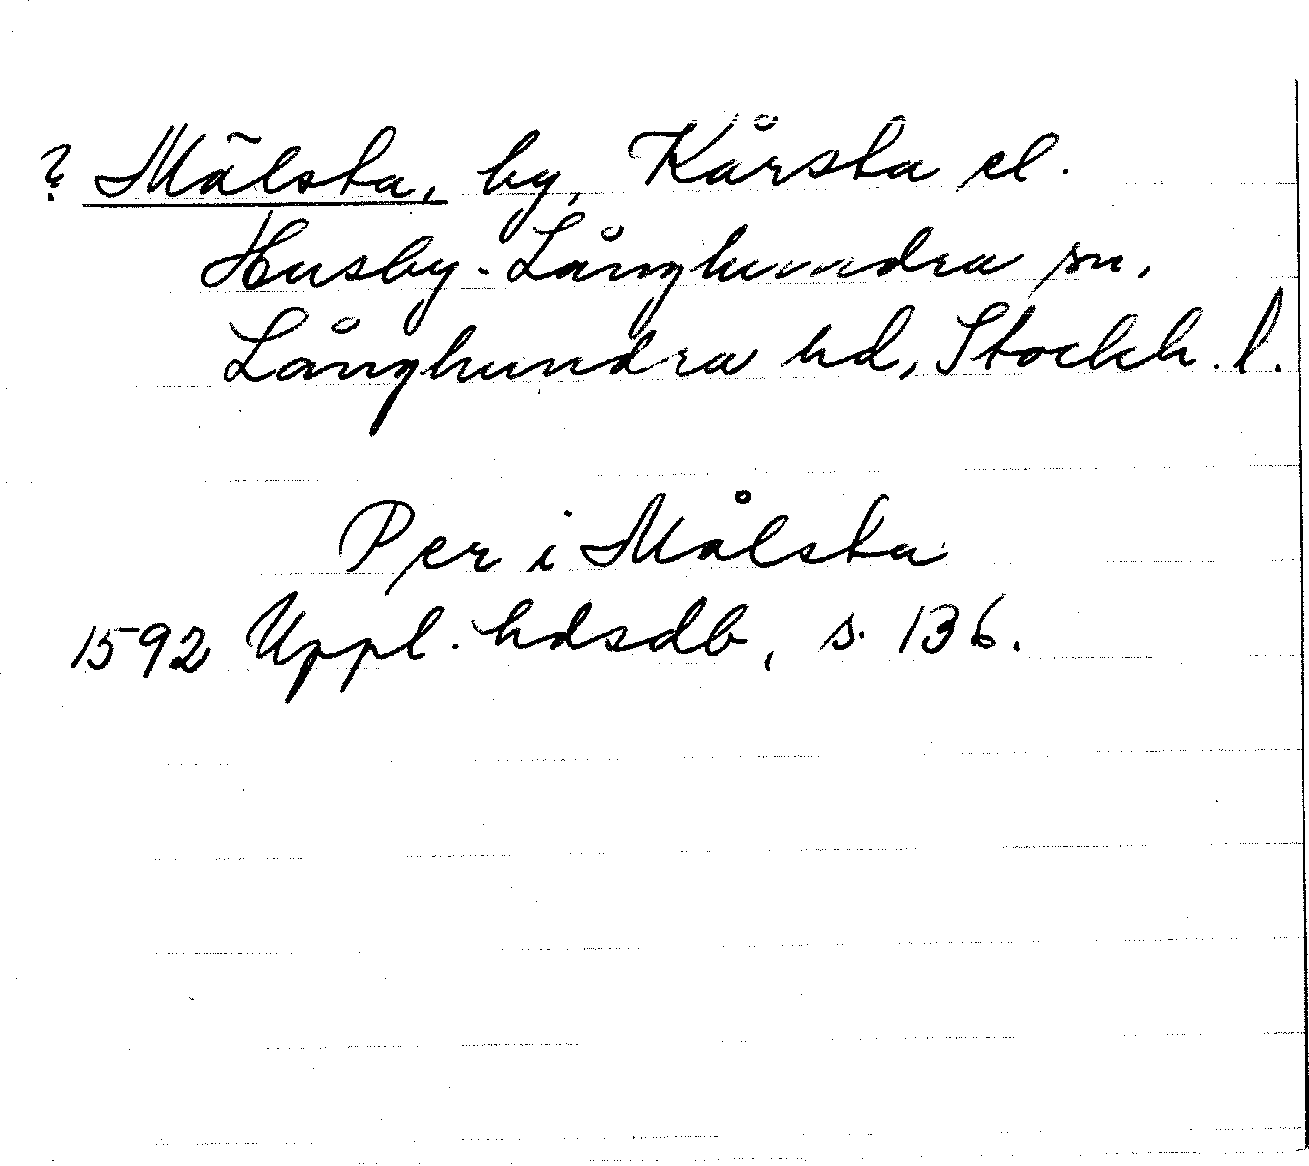 ? Mälsta, by, Kårsta el.
Husby-Långhundra sn,
Långhundra hd, Stockh. l.
Per i Målsta
1592 Uppl. hdsdb, s. 136.